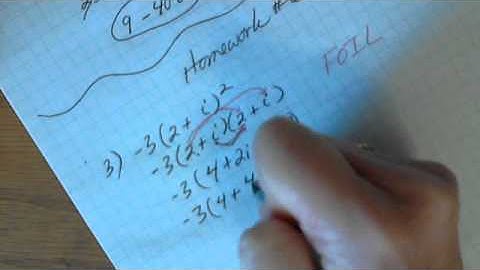 9 - 40
Homework #
FOIL
3) -3(2 + i)²
-3(2 + i)(2 + i)
-3(4 + 2i
-3(4 + 4